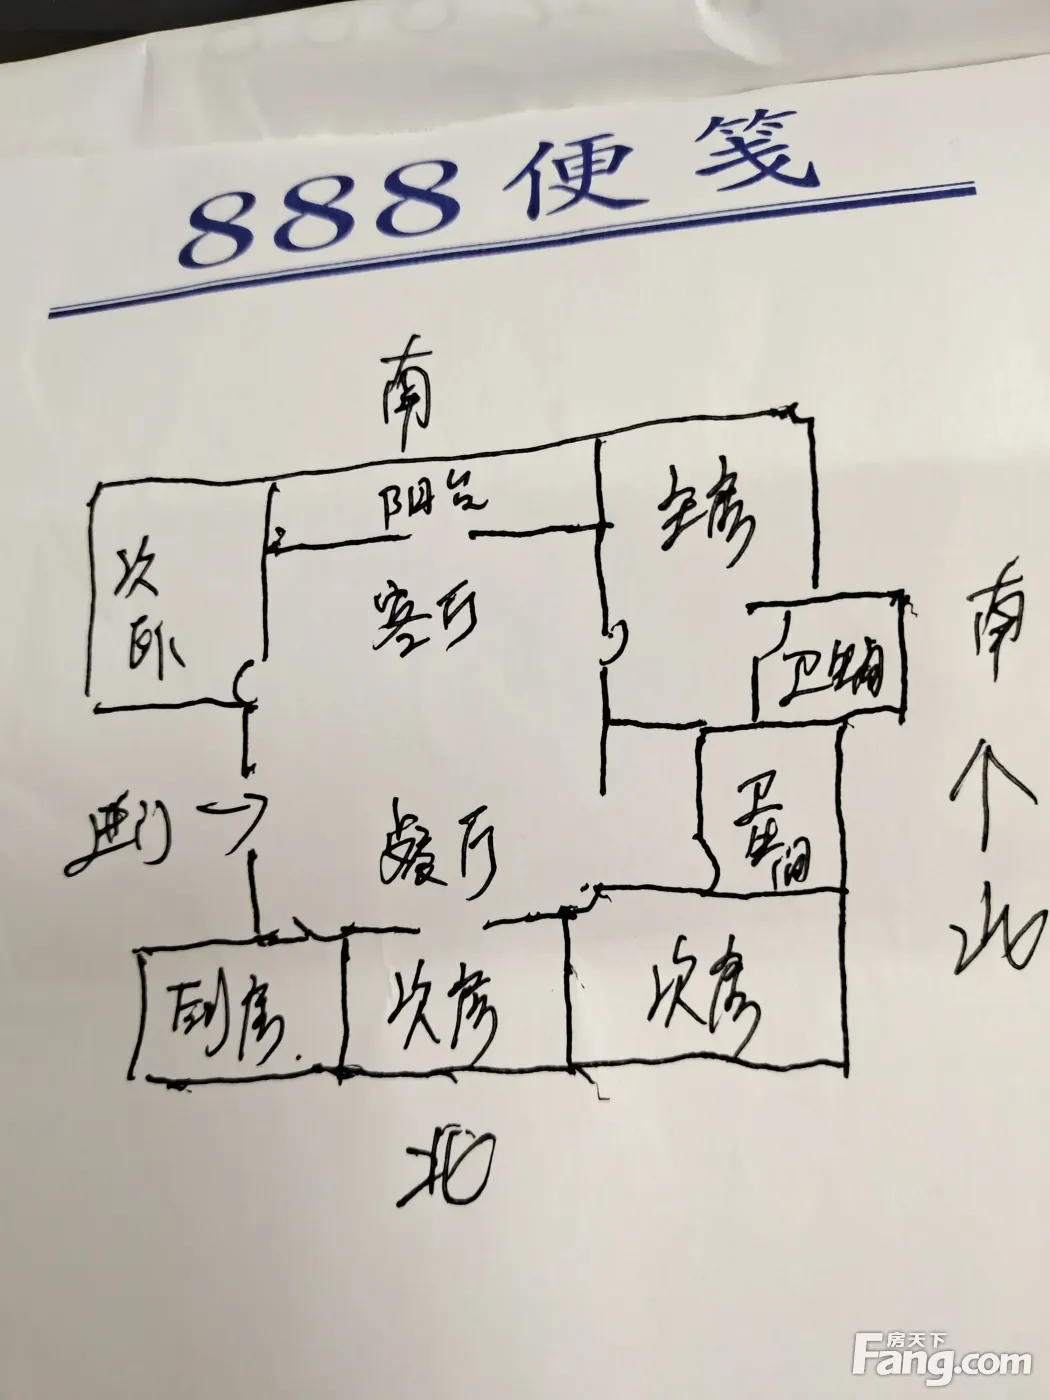 888便笺
南
阳台
主房
次
卧
客厅
南
卫生间
进门
餐厅
卫
生
间
北
次房
次房
北
房天下
Fang.com